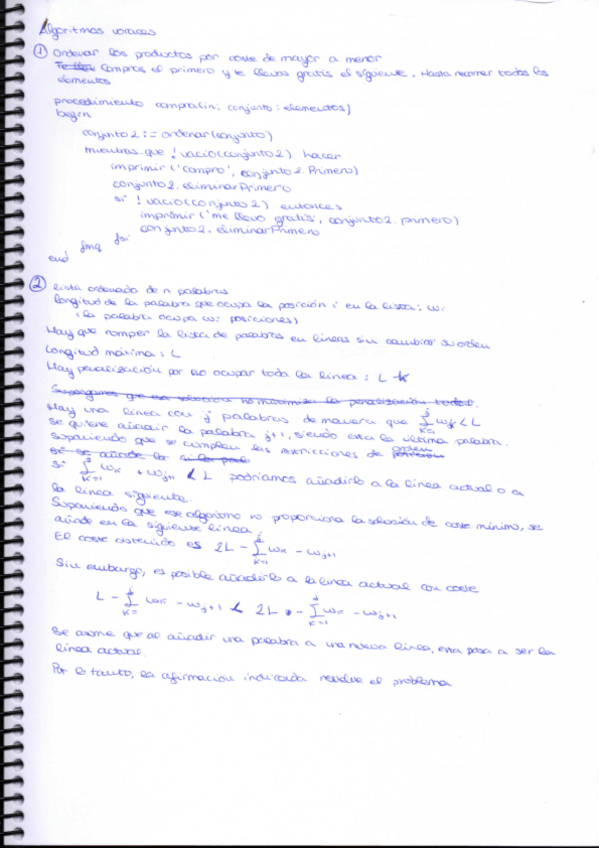 Algoritmos voraces
① Ordenar los productos por coste de mayor a menor
Compras el primero y te llevas gratis el siguiente. Hasta recorrer todos los
elementos
procedimiento compra(in: conjunto: elementos)
begin
conjunto2 := ordenar(conjunto)
mientras que ! vacio(conjunto2) hacer
imprimir ('compro', conjunto2.Primero)
conjunto2.eliminarPrimero
si ! vacio(conjunto2) entonces
imprimir('me llevo gratis', conjunto2.primero)
conjunto2.eliminarPrimero
fsi
fmq
end
② Lista ordenada de n palabras
Longitud de la palabra que ocupa la posición i en la lista: wi
(la palabra ocupa wi posiciones)
Hay que romper la lista de palabras en líneas sin cambiar su orden
Longitud máxima: L
Hay penalización por no ocupar toda la línea: L-K
Supongamos que esa solución no minimiza la penalización total.
Hay una línea con j palabras de manera que Σ wj < L
Se quiere añadir la palabra j+1, siendo esta la última palabra.
Suponiendo que se cumplen las restricciones de orden
Si Σ(k=1..j) wk + wj+1 < L podríamos añadirlo a la línea actual o a
la línea siguiente.
Suponiendo que ese algoritmo no proporciona la solución de coste mínimo, se
añade en la siguiente línea.
El coste obtenido es 2L - Σ(k=1..j) wk - wj+1
Sin embargo, es posible añadirlo a la línea actual con coste
L - Σ(k=1..j) wk - wj+1 < 2L - Σ(k=1..j) wk - wj+1
Se asume que al añadir una palabra a una nueva línea, esta pasa a ser la
línea actual.
Por lo tanto, la afirmación indicada resuelve el problema